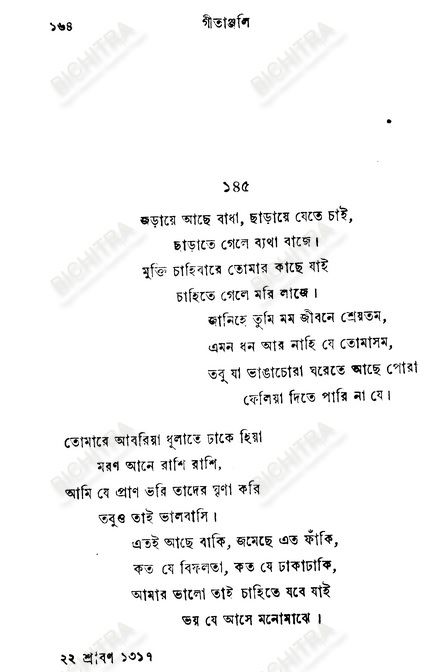 ১৬৪
গীতাঞ্জলি
১৪৫
জড়ায়ে আছে বাধা, ছাড়ায়ে যেতে চাই,
ছাড়াতে গেলে ব্যথা বাজে।
মুক্তি চাহিবারে তোমার কাছে যাই
চাহিতে গেলে মরি লাজে।
জানিহে তুমি মম জীবনে শ্রেয়তম,
এমন ধন আর নাহি যে তোমাসম,
তবু যা ভাঙাচোরা ঘরেতে আছে পোরা
ফেলিয়া দিতে পারি না যে।
তোমারে আবরিয়া ধূলাতে ঢাকে হিয়া
মরণ আনে রাশি রাশি,
আমি যে প্রাণ ভরি তাদের ঘৃণা করি
তবুও তাই ভালবাসি।
এতই আছে বাকি, জমেছে এত ফাঁকি,
কত যে বিফলতা, কত যে ঢাকাঢাকি,
আমার ভালো তাই চাহিতে যবে যাই
ভয় যে আসে মনোমাঝে।
২২ শ্রাবণ ১৩১৭
BICHITRA
BICHITRA
BICHITRA
BICHITRA
BICHITRA
BICHITRA
BICHITRA
BICHITRA